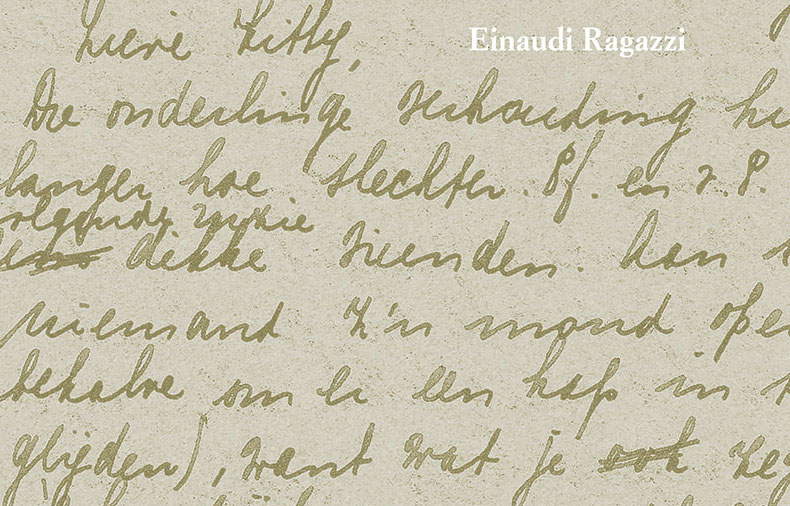 Einaudi Ragazzi
Lieve Kitty,
De onderlinge verhouding hi
langer hoe slechter. Pf. en v. P.
volgende ruzie
dikke vrienden. Aan
niemand z'n mond ope
behalve om er een hap in t
glijden), want wat je ook ze